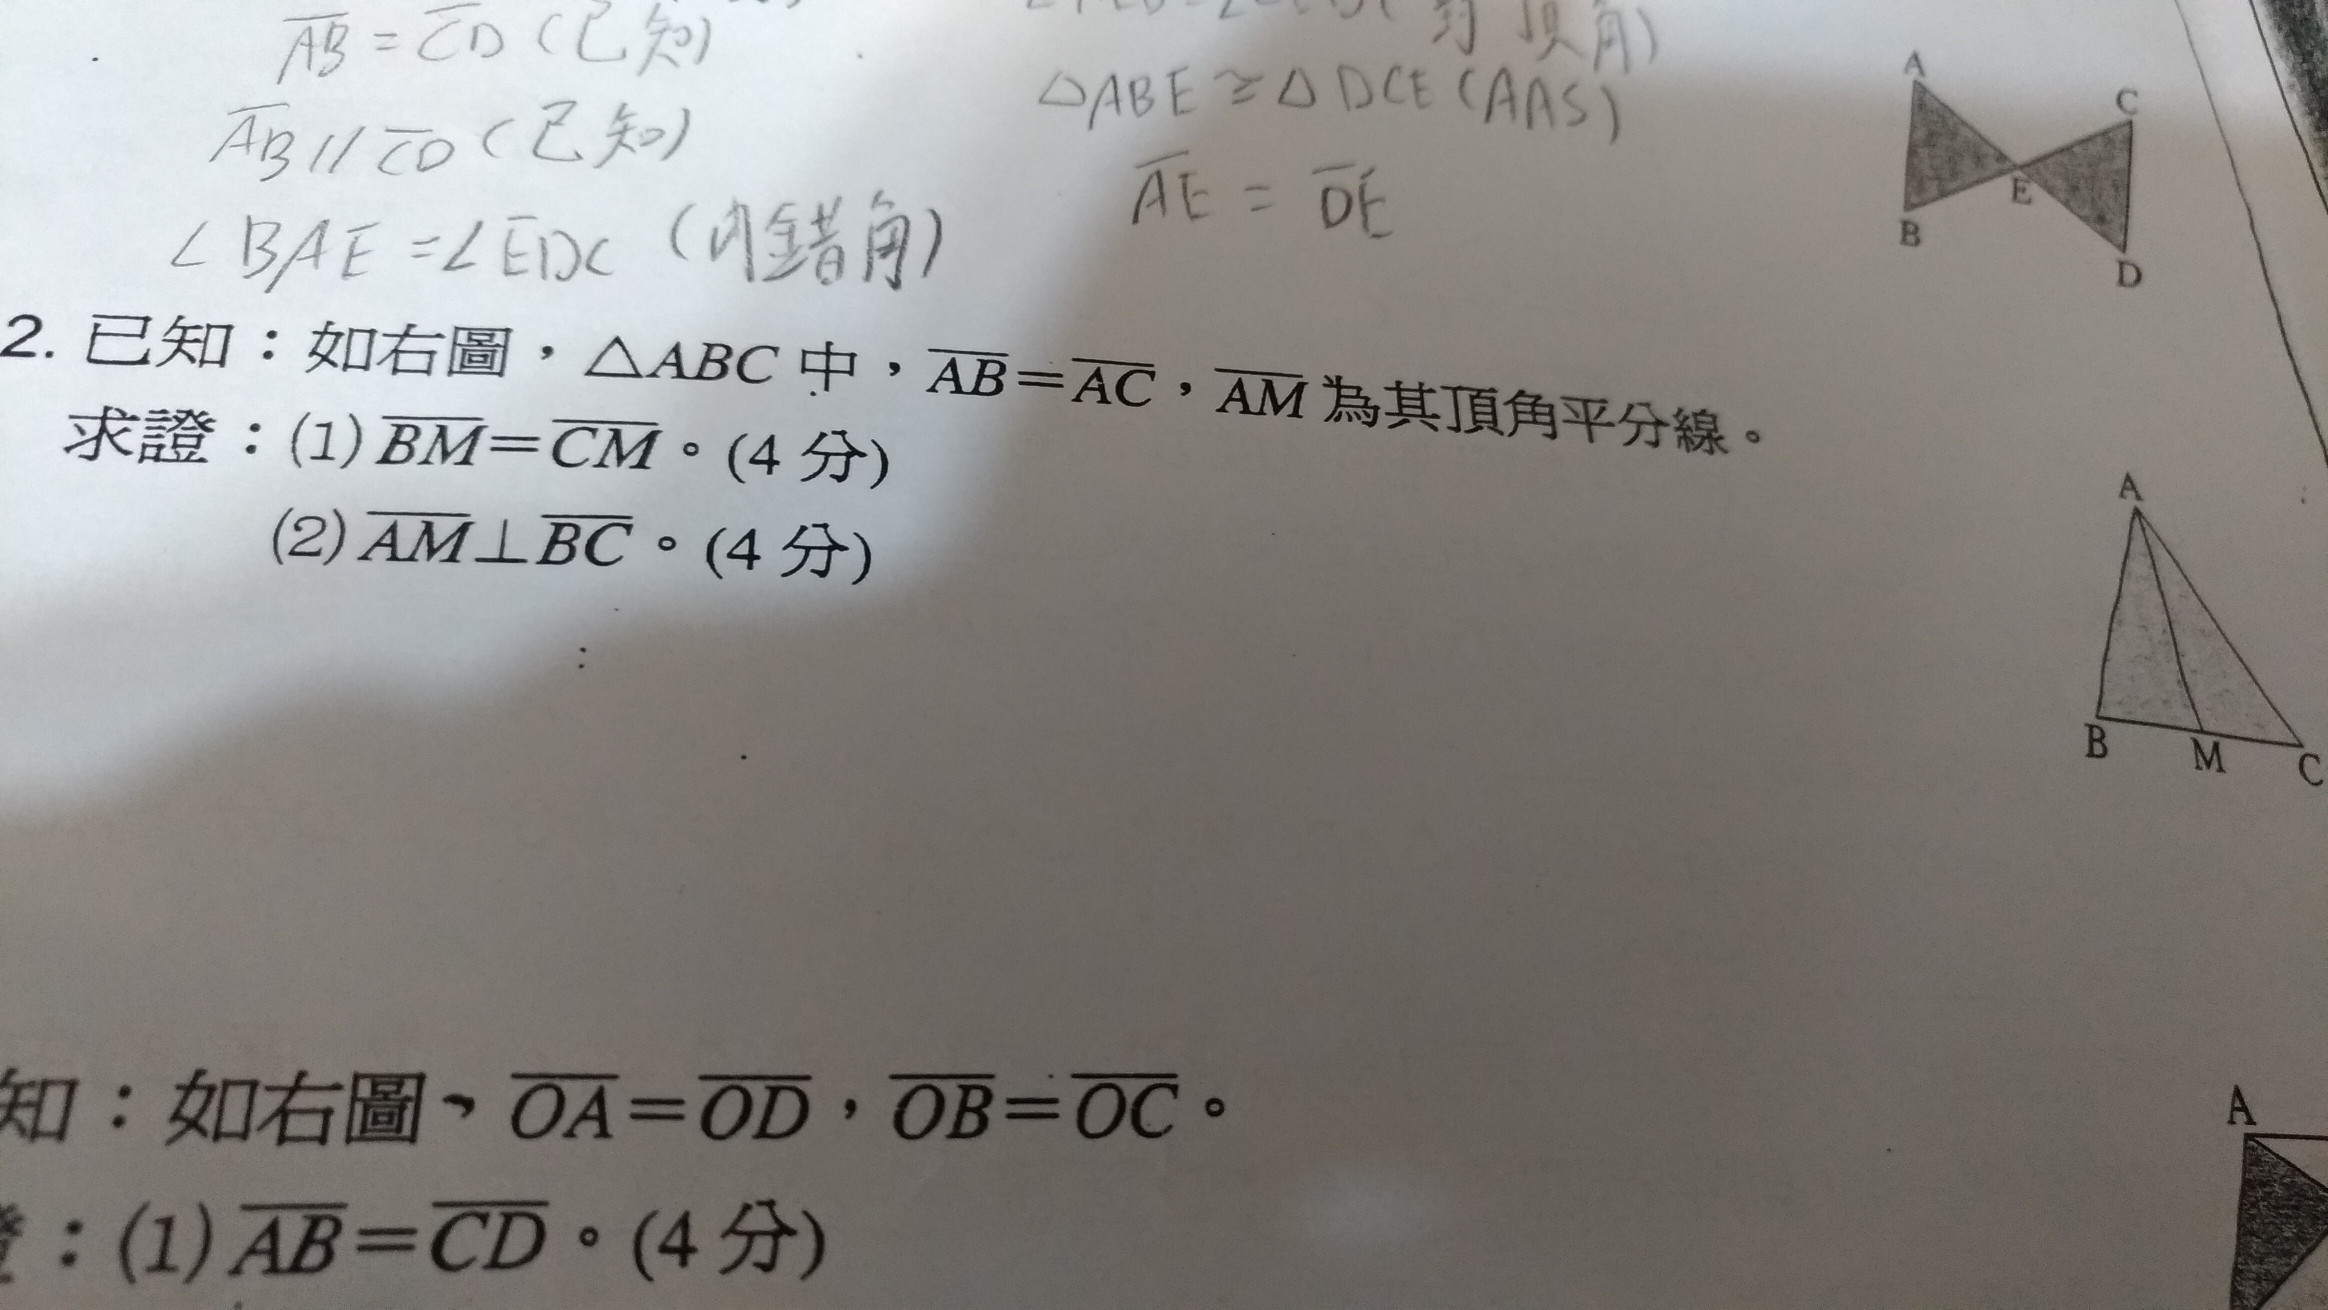 AB = CD (已知)
AB // CD (已知)
∠BAE = ∠EDC (內錯角)
對頂角)
△ABE ≅ △DCE (AAS)
AE = DE
A
C
E
B
D
2. 已知：如右圖，△ABC 中，AB=AC，AM 為其頂角平分線。
求證：(1) BM=CM。(4 分)
(2) AM⊥BC。(4 分)
A
B
M
C
知：如右圖、OA=OD，OB=OC。
：(1) AB=CD。(4 分)
A